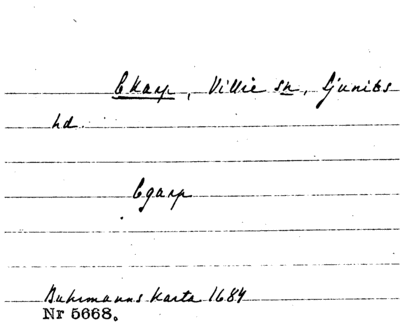 Ekarp, Villie sn, Ljunits
hd.
Egarp
Buhrmanns Karta 1684
Nr 5668.